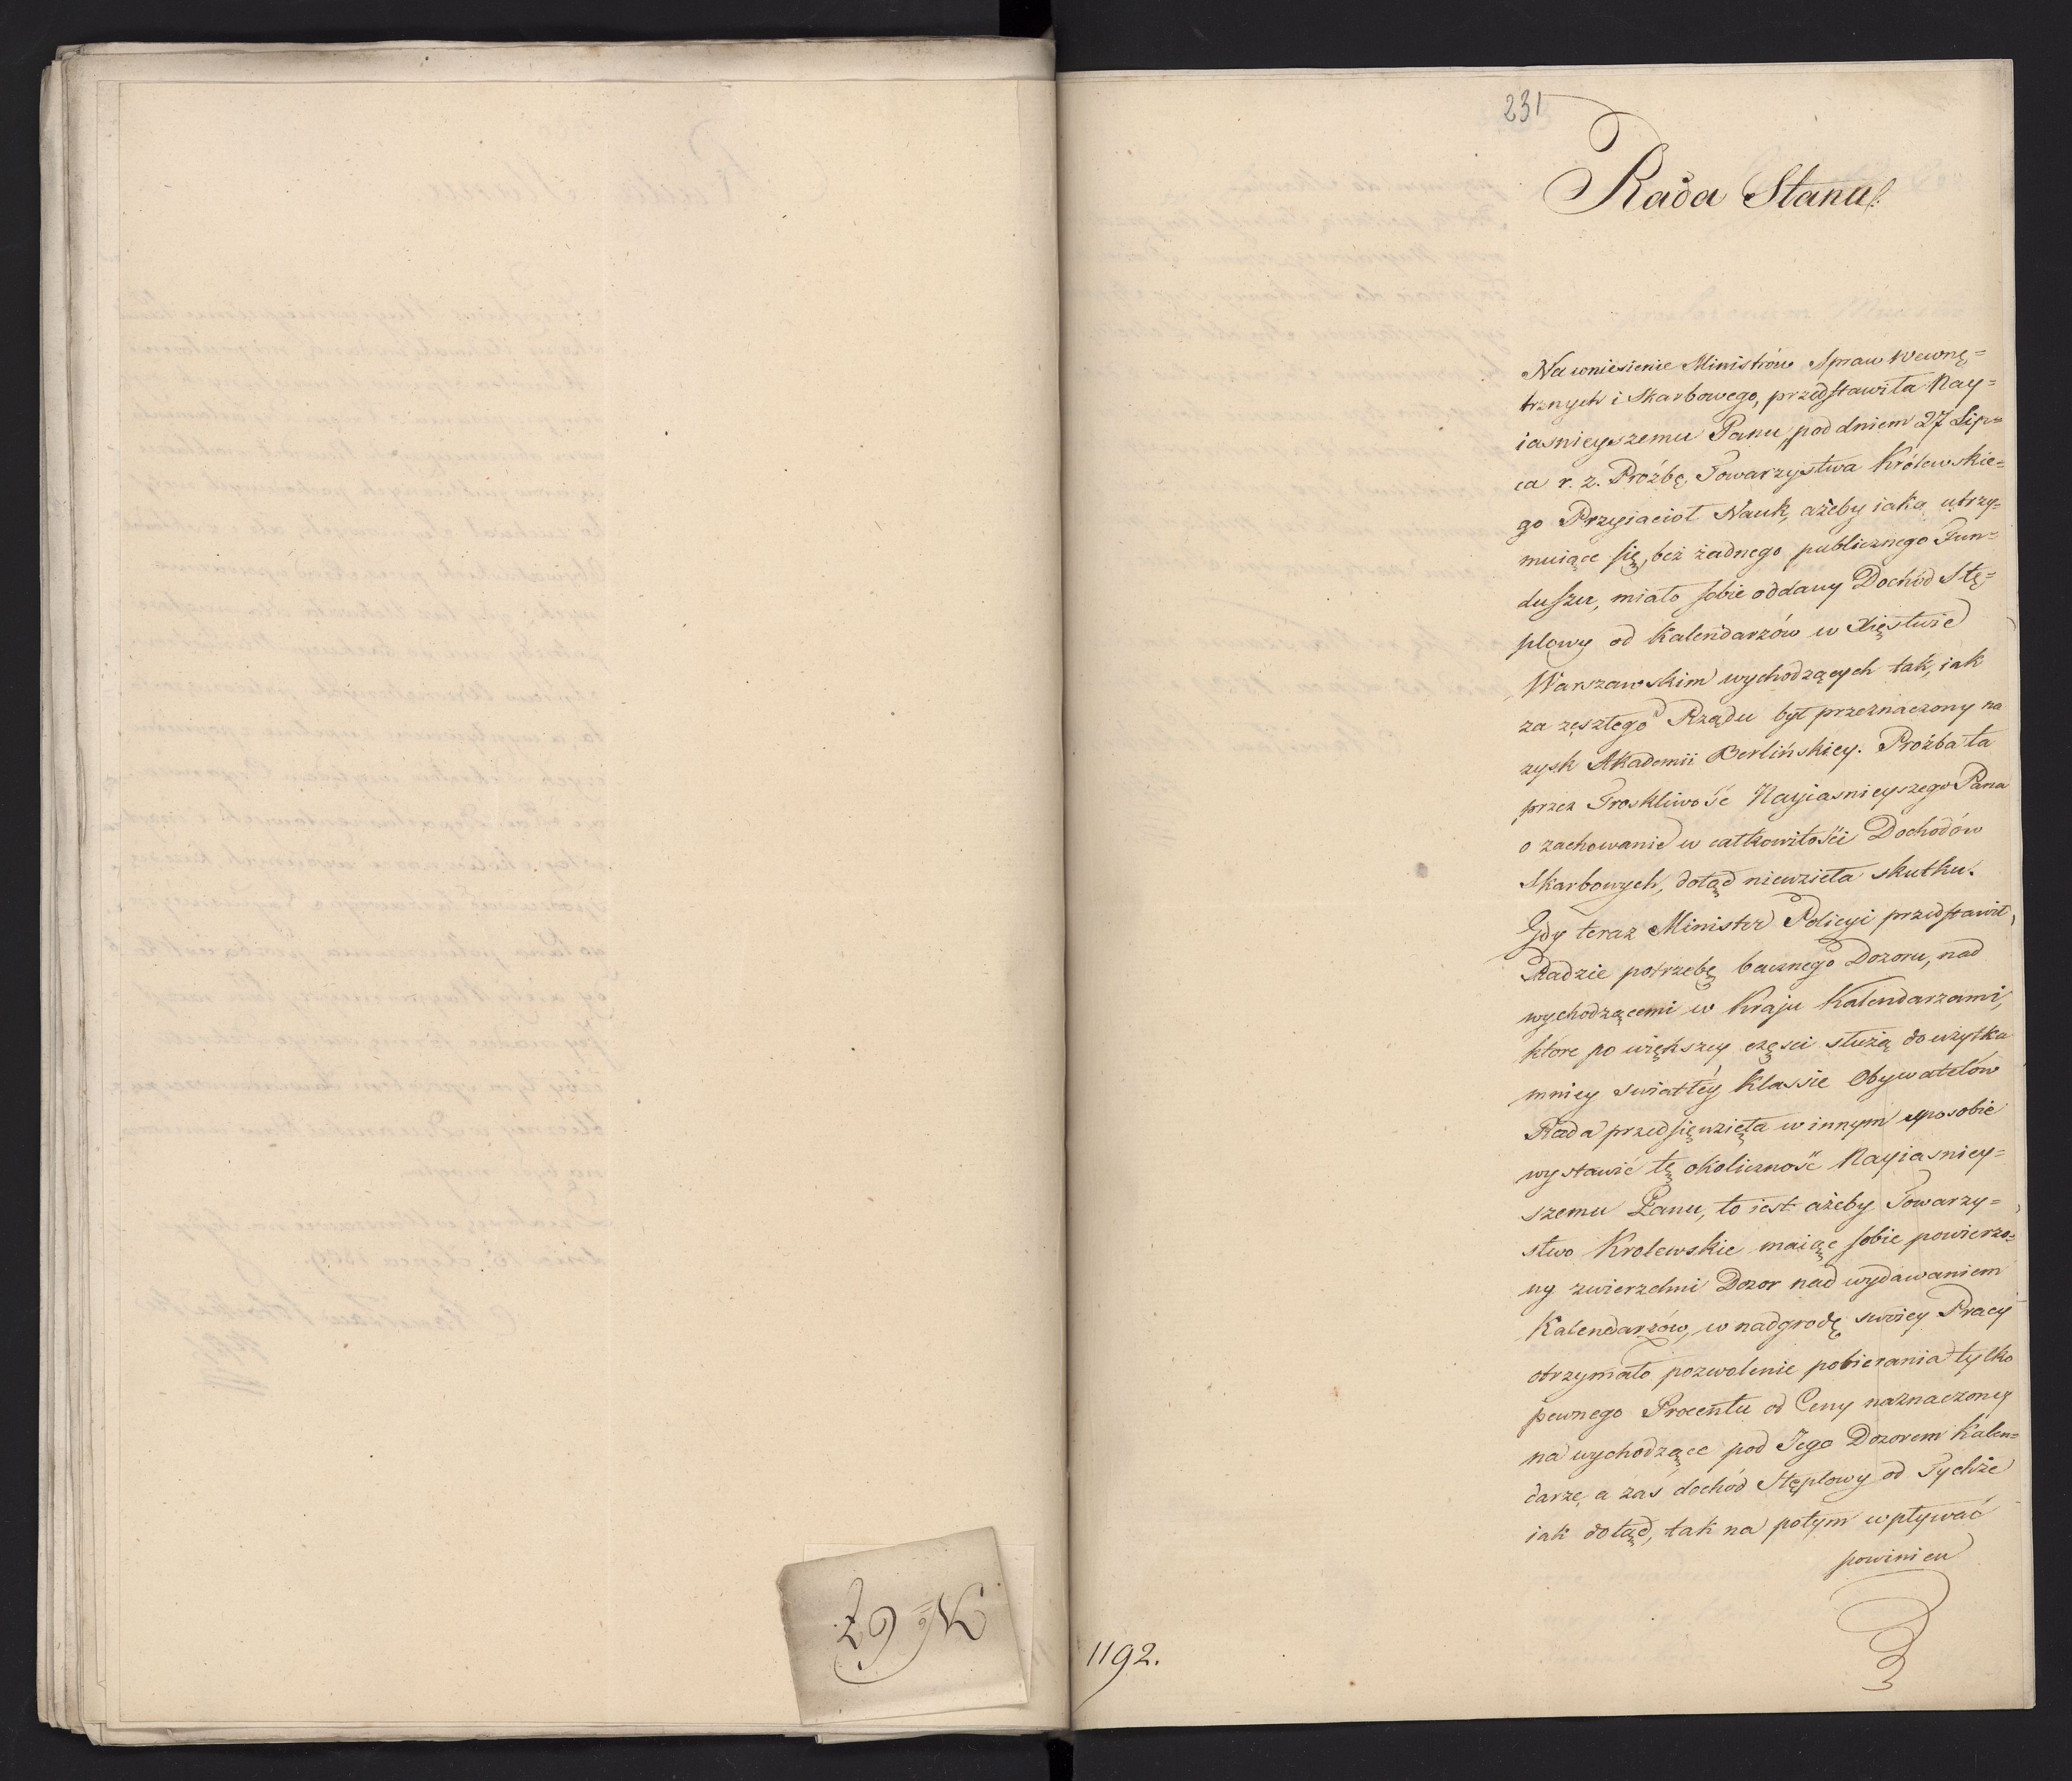 231
Rada Stanu.
Na wniesienie Ministrów Spraw Wewnę=
trznych i Skarbowego, przedstawiła Nay=
iasnieyszemu Panu pod dniem 27 Lip=
ca r. z. Proźbę Towarzystwa Królewskie=
go Przyiacioł Nauk, ażeby iako utrzy=
muiące się bez żadnego publicznego Fun=
duszu, miało sobie oddany Dochód Stę=
plowy od Kalendarzów w Xięstwie
Warszawskim wychodzących tak, iak
za zeszłego Rządu był przeznaczony na
zysk Akademii Berlińskiey. Proźba ta
przez Troskliwość Nayiasnieyszego Pana
o zachowanie w całkowitości Dochodów
Skarbowych, dotąd niewzięła skutku.
Gdy teraz Minister Policyi przedstawił
Radzie potrzebę bacznego Dozoru, nad
wychodzącemi w Kraju Kalendarzami,
ktore po większey części służą do użytku
mniey swiatłey Klassie Obywatelów
Rada przedsięwzięła w innym sposobie
wystawić tę okoliczność Nayiasniey=
szemu Panu, to iest ażeby Towarzy=
stwo Krolewskie maiąc sobie powierzo=
ny zwierzchni Dozor nad wydawaniem
Kalendarzów, w nadgrodę swoiey Pracy
otrzymało pozwolenie pobierania tylko
pewnego Procentu od Ceny naznaczoney
na wychodzące pod Jego Dozorem Kalen=
darze, a zaś dochód Stęplowy od Tychże
iak dotąd, tak na potym wpływać
powinien
1192.